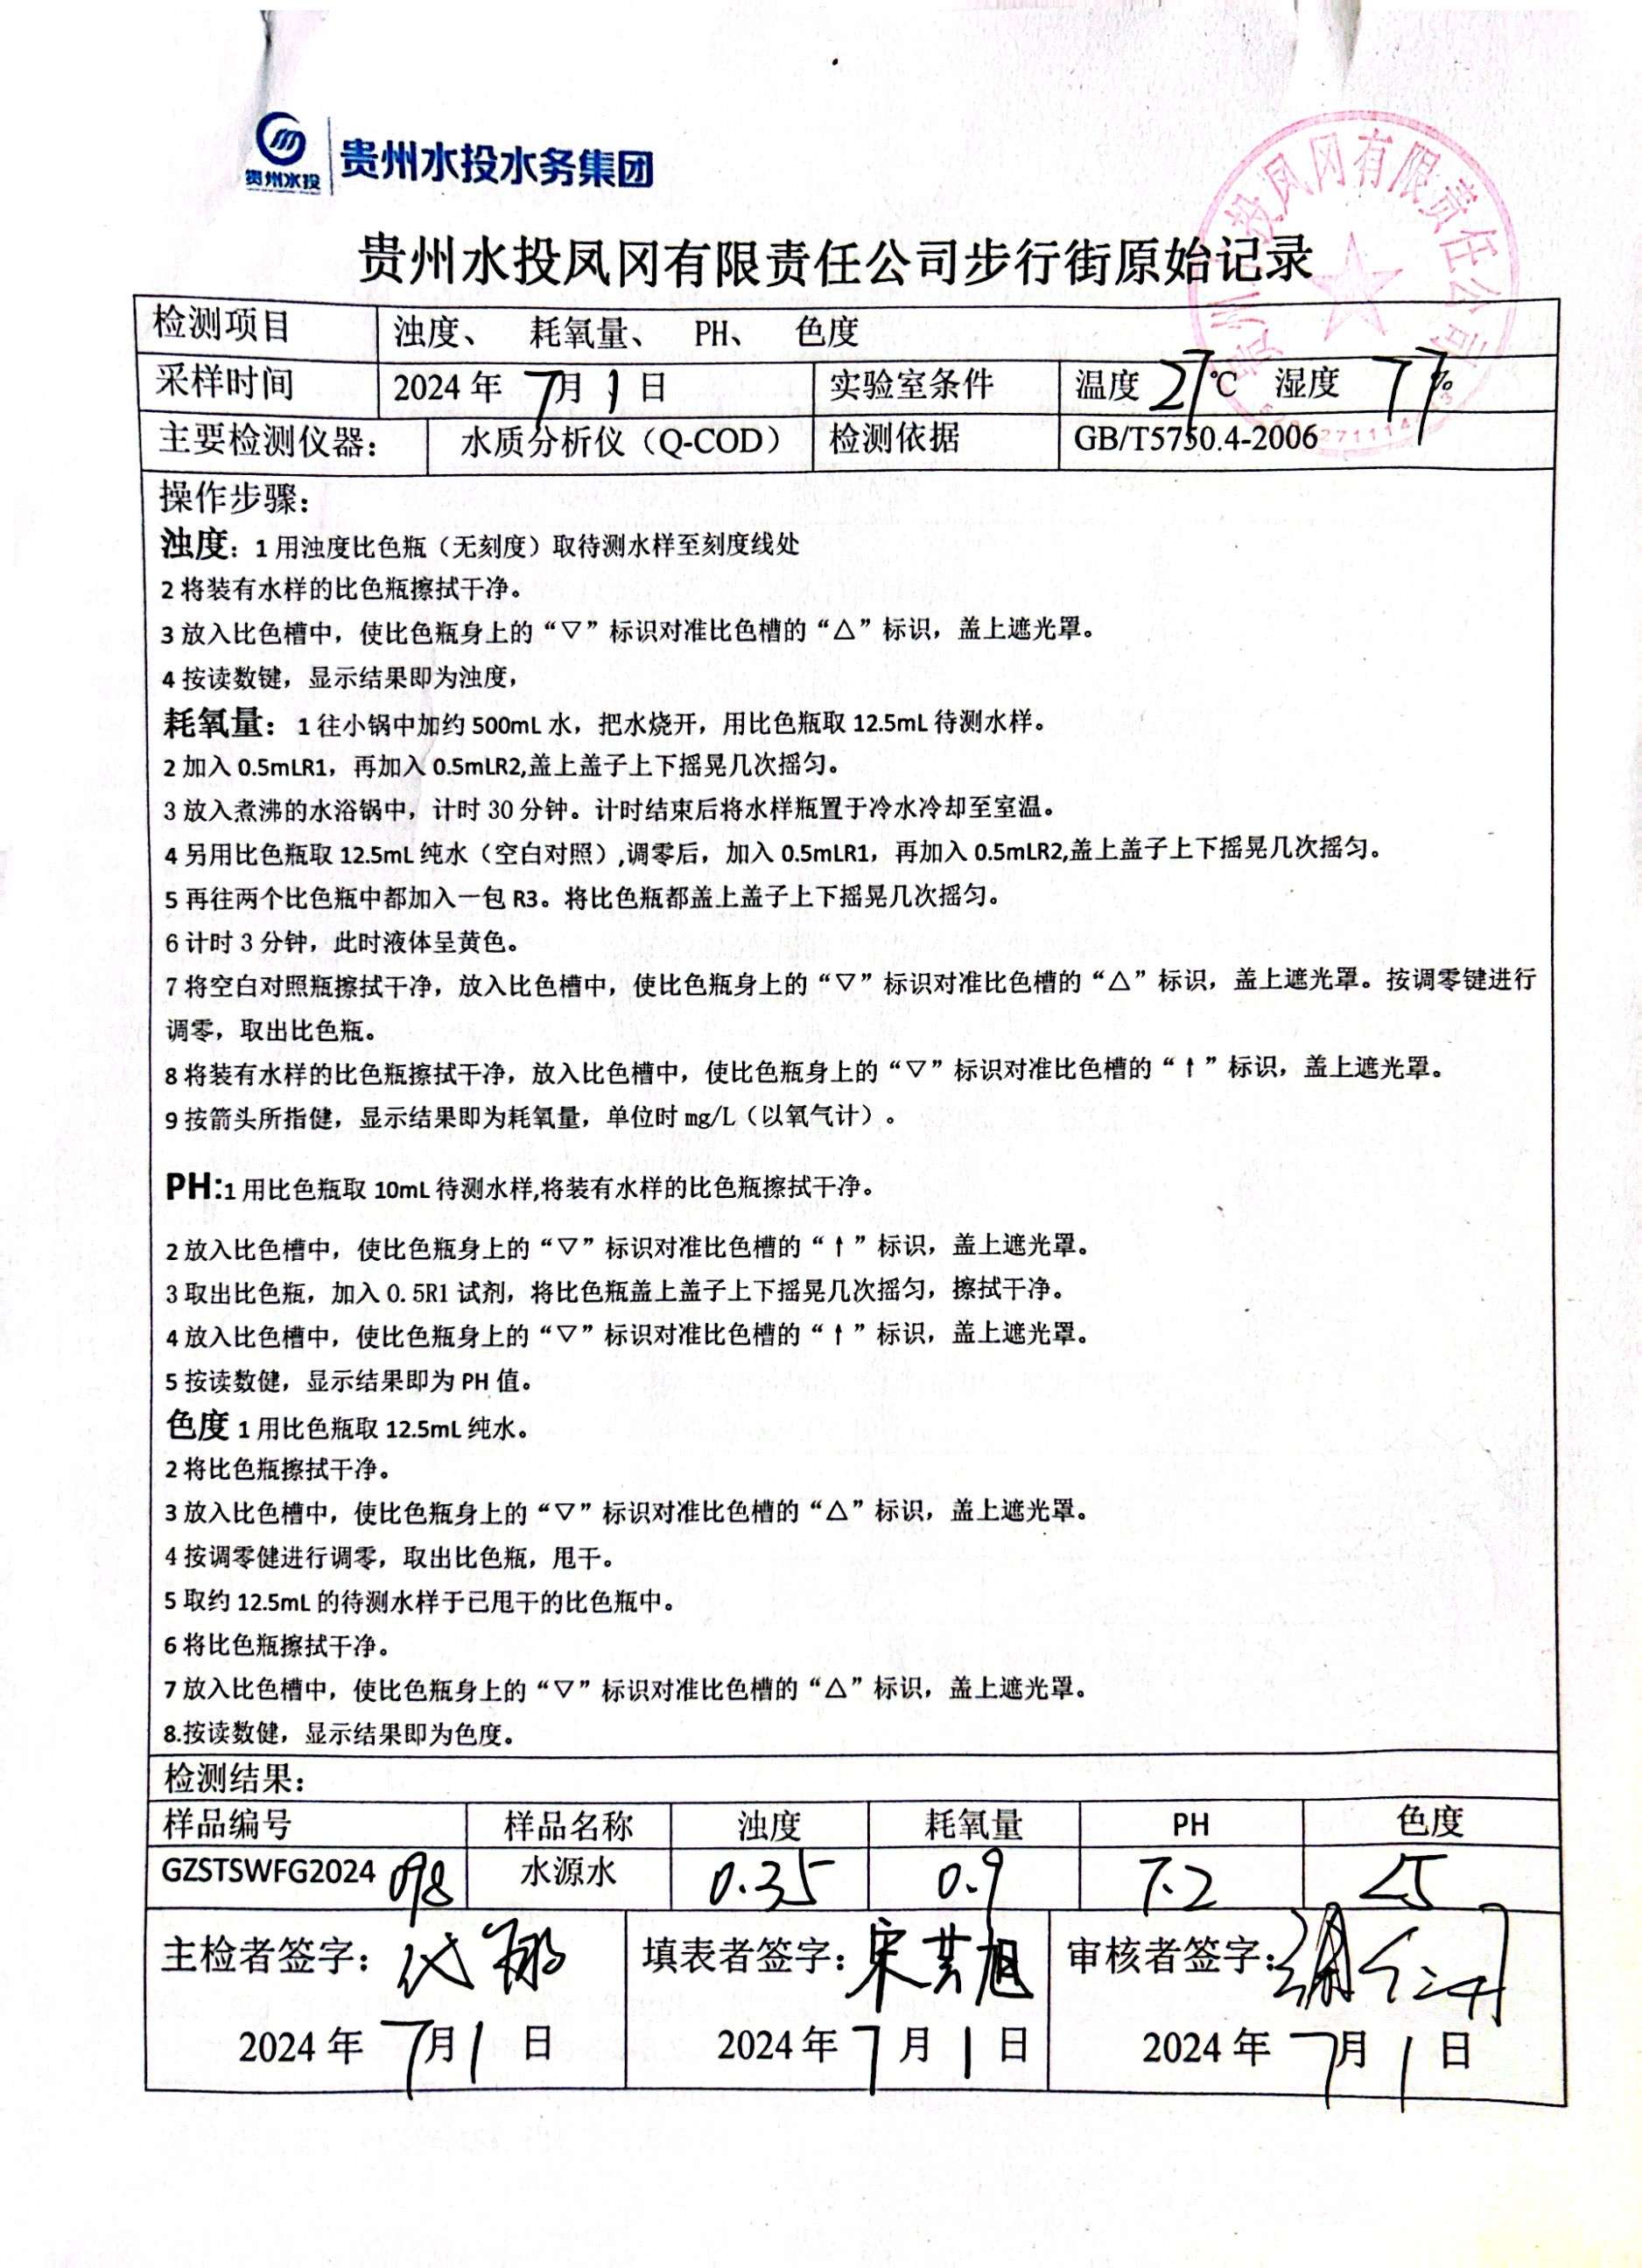 贵州水投
贵州水投水务集团
投凤冈有限责任公司
贵州水投凤冈有限责任公司步行街原始记录
检测项目 浊度、 耗氧量、 PH、 色度
采样时间 2024 年 7 月 1 日 实验室条件 温度 27 ℃ 湿度 77 %
主要检测仪器： 水质分析仪（Q-COD） 检测依据 GB/T5750.4-2006
操作步骤：
浊度：1 用浊度比色瓶（无刻度）取待测水样至刻度线处
2 将装有水样的比色瓶擦拭干净。
3 放入比色槽中，使比色瓶身上的“▽”标识对准比色槽的“△”标识，盖上遮光罩。
4 按读数键，显示结果即为浊度，
耗氧量：1 往小锅中加约 500mL 水，把水烧开，用比色瓶取 12.5mL 待测水样。
2 加入 0.5mLR1，再加入 0.5mLR2,盖上盖子上下摇晃几次摇匀。
3 放入煮沸的水浴锅中，计时 30 分钟。计时结束后将水样瓶置于冷水冷却至室温。
4 另用比色瓶取 12.5mL 纯水（空白对照）,调零后，加入 0.5mLR1，再加入 0.5mLR2,盖上盖子上下摇晃几次摇匀。
5 再往两个比色瓶中都加入一包 R3。将比色瓶都盖上盖子上下摇晃几次摇匀。
6 计时 3 分钟，此时液体呈黄色。
7 将空白对照瓶擦拭干净，放入比色槽中，使比色瓶身上的“▽”标识对准比色槽的“△”标识，盖上遮光罩。按调零键进行
调零，取出比色瓶。
8 将装有水样的比色瓶擦拭干净，放入比色槽中，使比色瓶身上的“▽”标识对准比色槽的“↑”标识，盖上遮光罩。
9 按箭头所指健，显示结果即为耗氧量，单位时 mg/L（以氧气计）。
PH:1 用比色瓶取 10mL 待测水样,将装有水样的比色瓶擦拭干净。
2 放入比色槽中，使比色瓶身上的“▽”标识对准比色槽的“↑”标识，盖上遮光罩。
3 取出比色瓶，加入 0.5R1 试剂，将比色瓶盖上盖子上下摇晃几次摇匀，擦拭干净。
4 放入比色槽中，使比色瓶身上的“▽”标识对准比色槽的“↑”标识，盖上遮光罩。
5 按读数健，显示结果即为 PH 值。
色度 1 用比色瓶取 12.5mL 纯水。
2 将比色瓶擦拭干净。
3 放入比色槽中，使比色瓶身上的“▽”标识对准比色槽的“△”标识，盖上遮光罩。
4 按调零健进行调零，取出比色瓶，甩干。
5 取约 12.5mL 的待测水样于已甩干的比色瓶中。
6 将比色瓶擦拭干净。
7 放入比色槽中，使比色瓶身上的“▽”标识对准比色槽的“△”标识，盖上遮光罩。
8.按读数健，显示结果即为色度。
检测结果：
样品编号 样品名称 浊度 耗氧量 PH 色度
GZSTSWFG2024 098 水源水 0.35 0.9 7.2 <5
主检者签字： 填表者签字： 宋芸旭 审核者签字：
2024 年 7 月 1 日 2024 年 7 月 1 日 2024 年 7 月 1 日